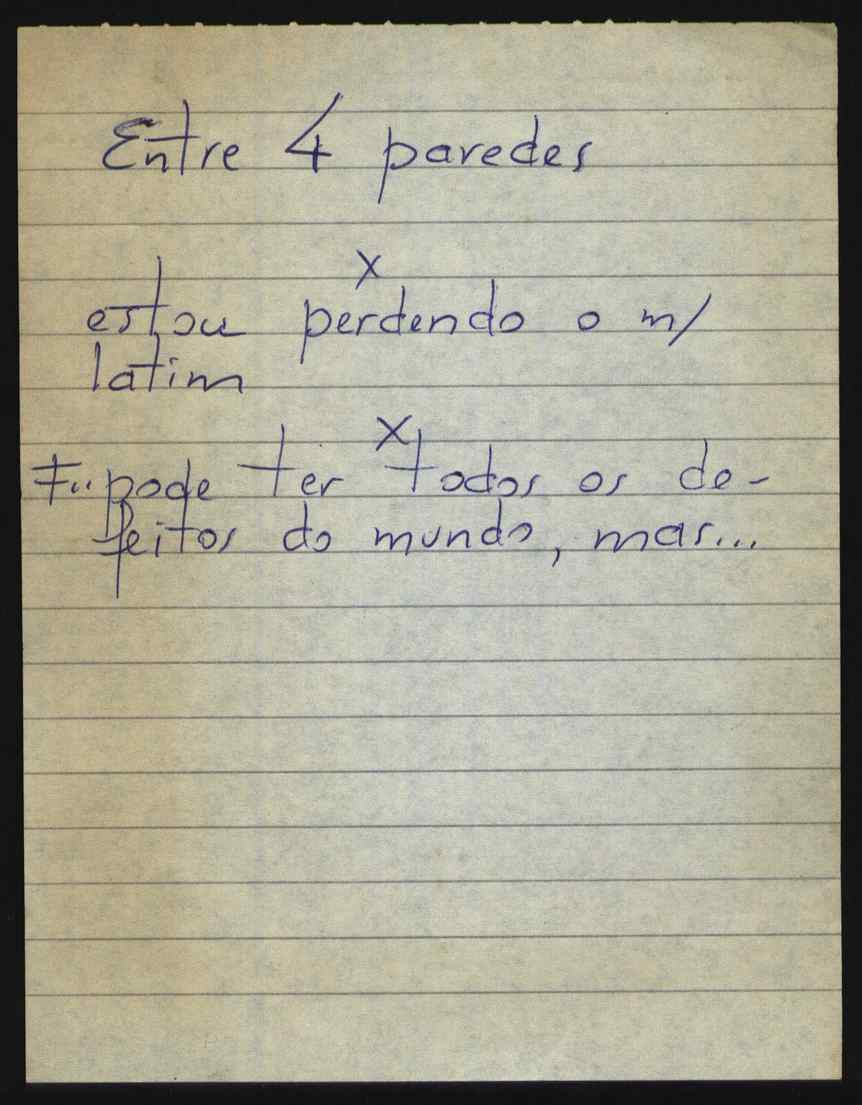 Entre 4 paredes
x
estou perdendo o m/
latim
x
F.. pode ter todos os de-
feitos do mundo, mas...